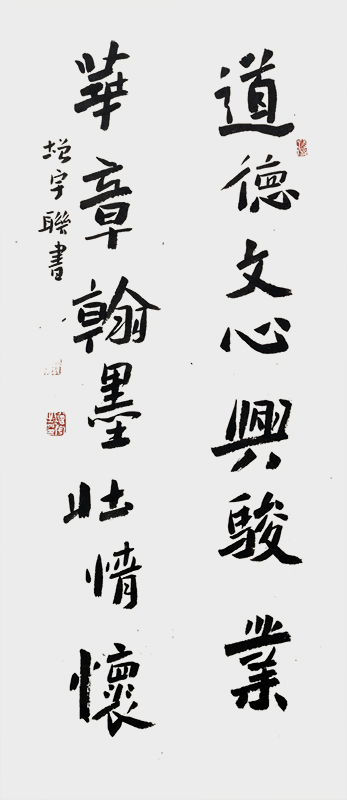 道德文心興駿業
華章翰墨壯情懷
增宇聯書